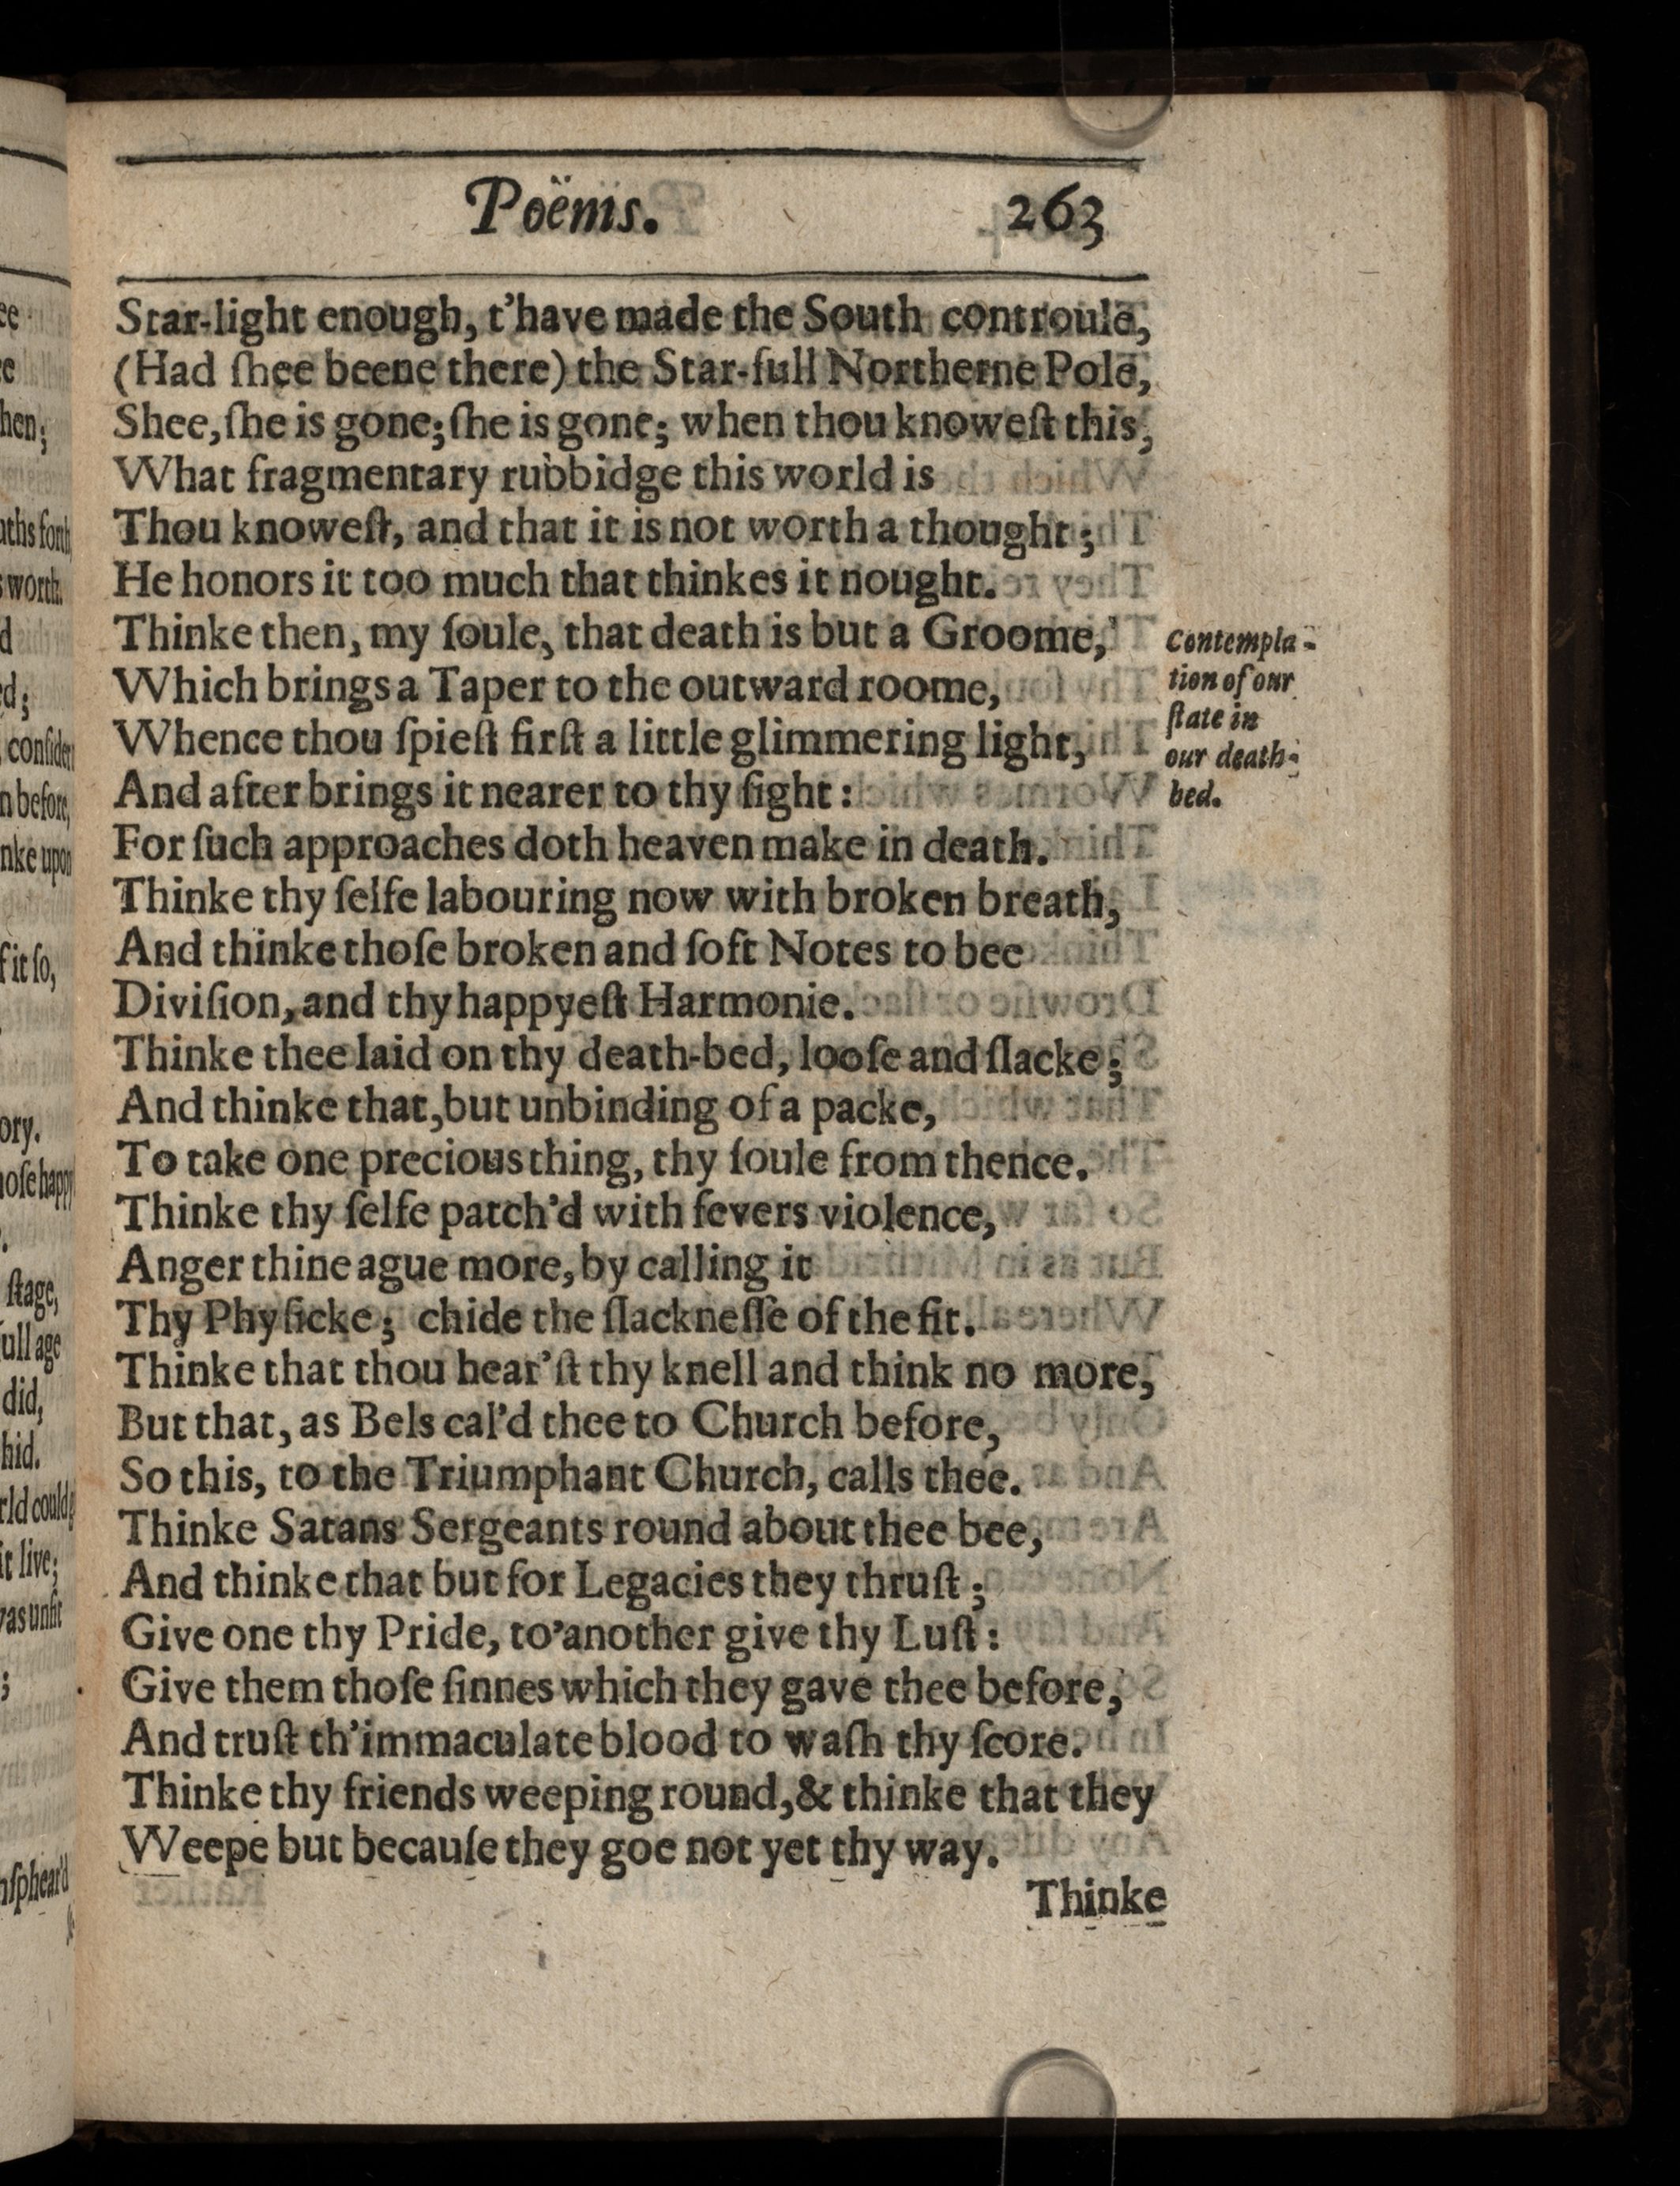 Poëms. 263
Star-light enough, t'have made the South controule,
(Had ſhee beene there) the Star-full Northerne Pole,
Shee, ſhe is gone; ſhe is gone; when thou knoweſt this,
What fragmentary rubbidge this world is
Thou knoweſt, and that it is not worth a thought;
He honors it too much that thinkes it nought.
Thinke then, my ſoule, that death is but a Groome,
Which brings a Taper to the outward roome,
Whence thou ſpieſt firſt a little glimmering light,
And after brings it nearer to thy ſight:
For ſuch approaches doth heaven make in death.
Thinke thy ſelfe labouring now with broken breath,
And thinke thoſe broken and ſoft Notes to bee
Diviſion, and thy happyeſt Harmonie.
Thinke thee laid on thy death-bed, looſe and ſlacke;
And thinke that, but unbinding of a packe,
To take one precious thing, thy ſoule from thence.
Thinke thy ſelfe patch'd with fevers violence,
Anger thine ague more, by calling it
Thy Phyſicke; chide the ſlackneſſe of the fit.
Thinke that thou hear'ſt thy knell and think no more,
But that, as Bels cal'd thee to Church before,
So this, to the Triumphant Church, calls thee.
Thinke Satans Sergeants round about thee bee,
And thinke that but for Legacies they thruſt;
Give one thy Pride, to'another give thy Luſt:
Give them thoſe ſinnes which they gave thee before,
And truſt th'immaculate blood to waſh thy ſcore.
Thinke thy friends weeping round, & thinke that they
Weepe but becauſe they goe not yet thy way.
Thinke
Contempla-
tion of our
ſtate in
our death-
bed.
hen;
worth.
n before,
nke upon
it ſo,
ory.
ſtage,
ull age
did,
hid.
it live;